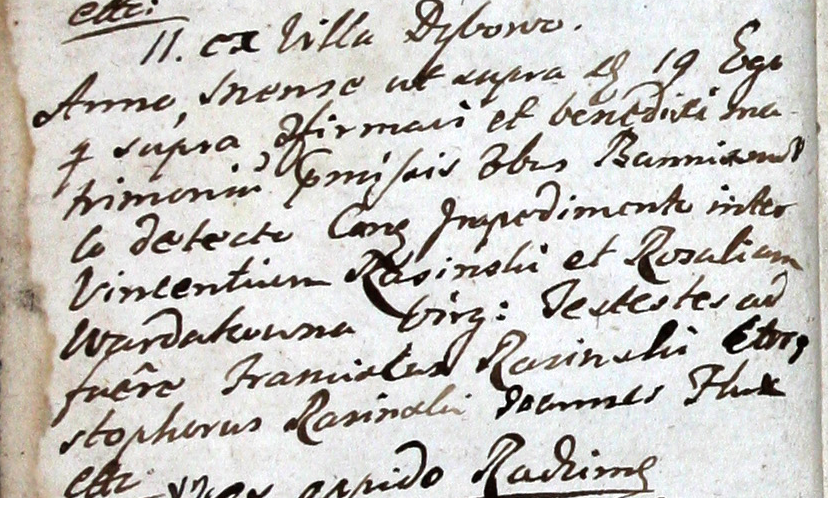 ettc:
11. ex Villa Dybowo.
Anno, Mense ut supra d 19 Ego
q supra Affirmavi et benedixi ma-
trimoniu pmissis 3bus Bannis nul
lo detecto Canq Impedimento inter
Vincentium Rasinski et Rosaliam
Wardakowna Virg: Testestes ad
fuêre Franciscus Rasinski Chry
stopherus Rasinski Joannes
ettc
ex oppido